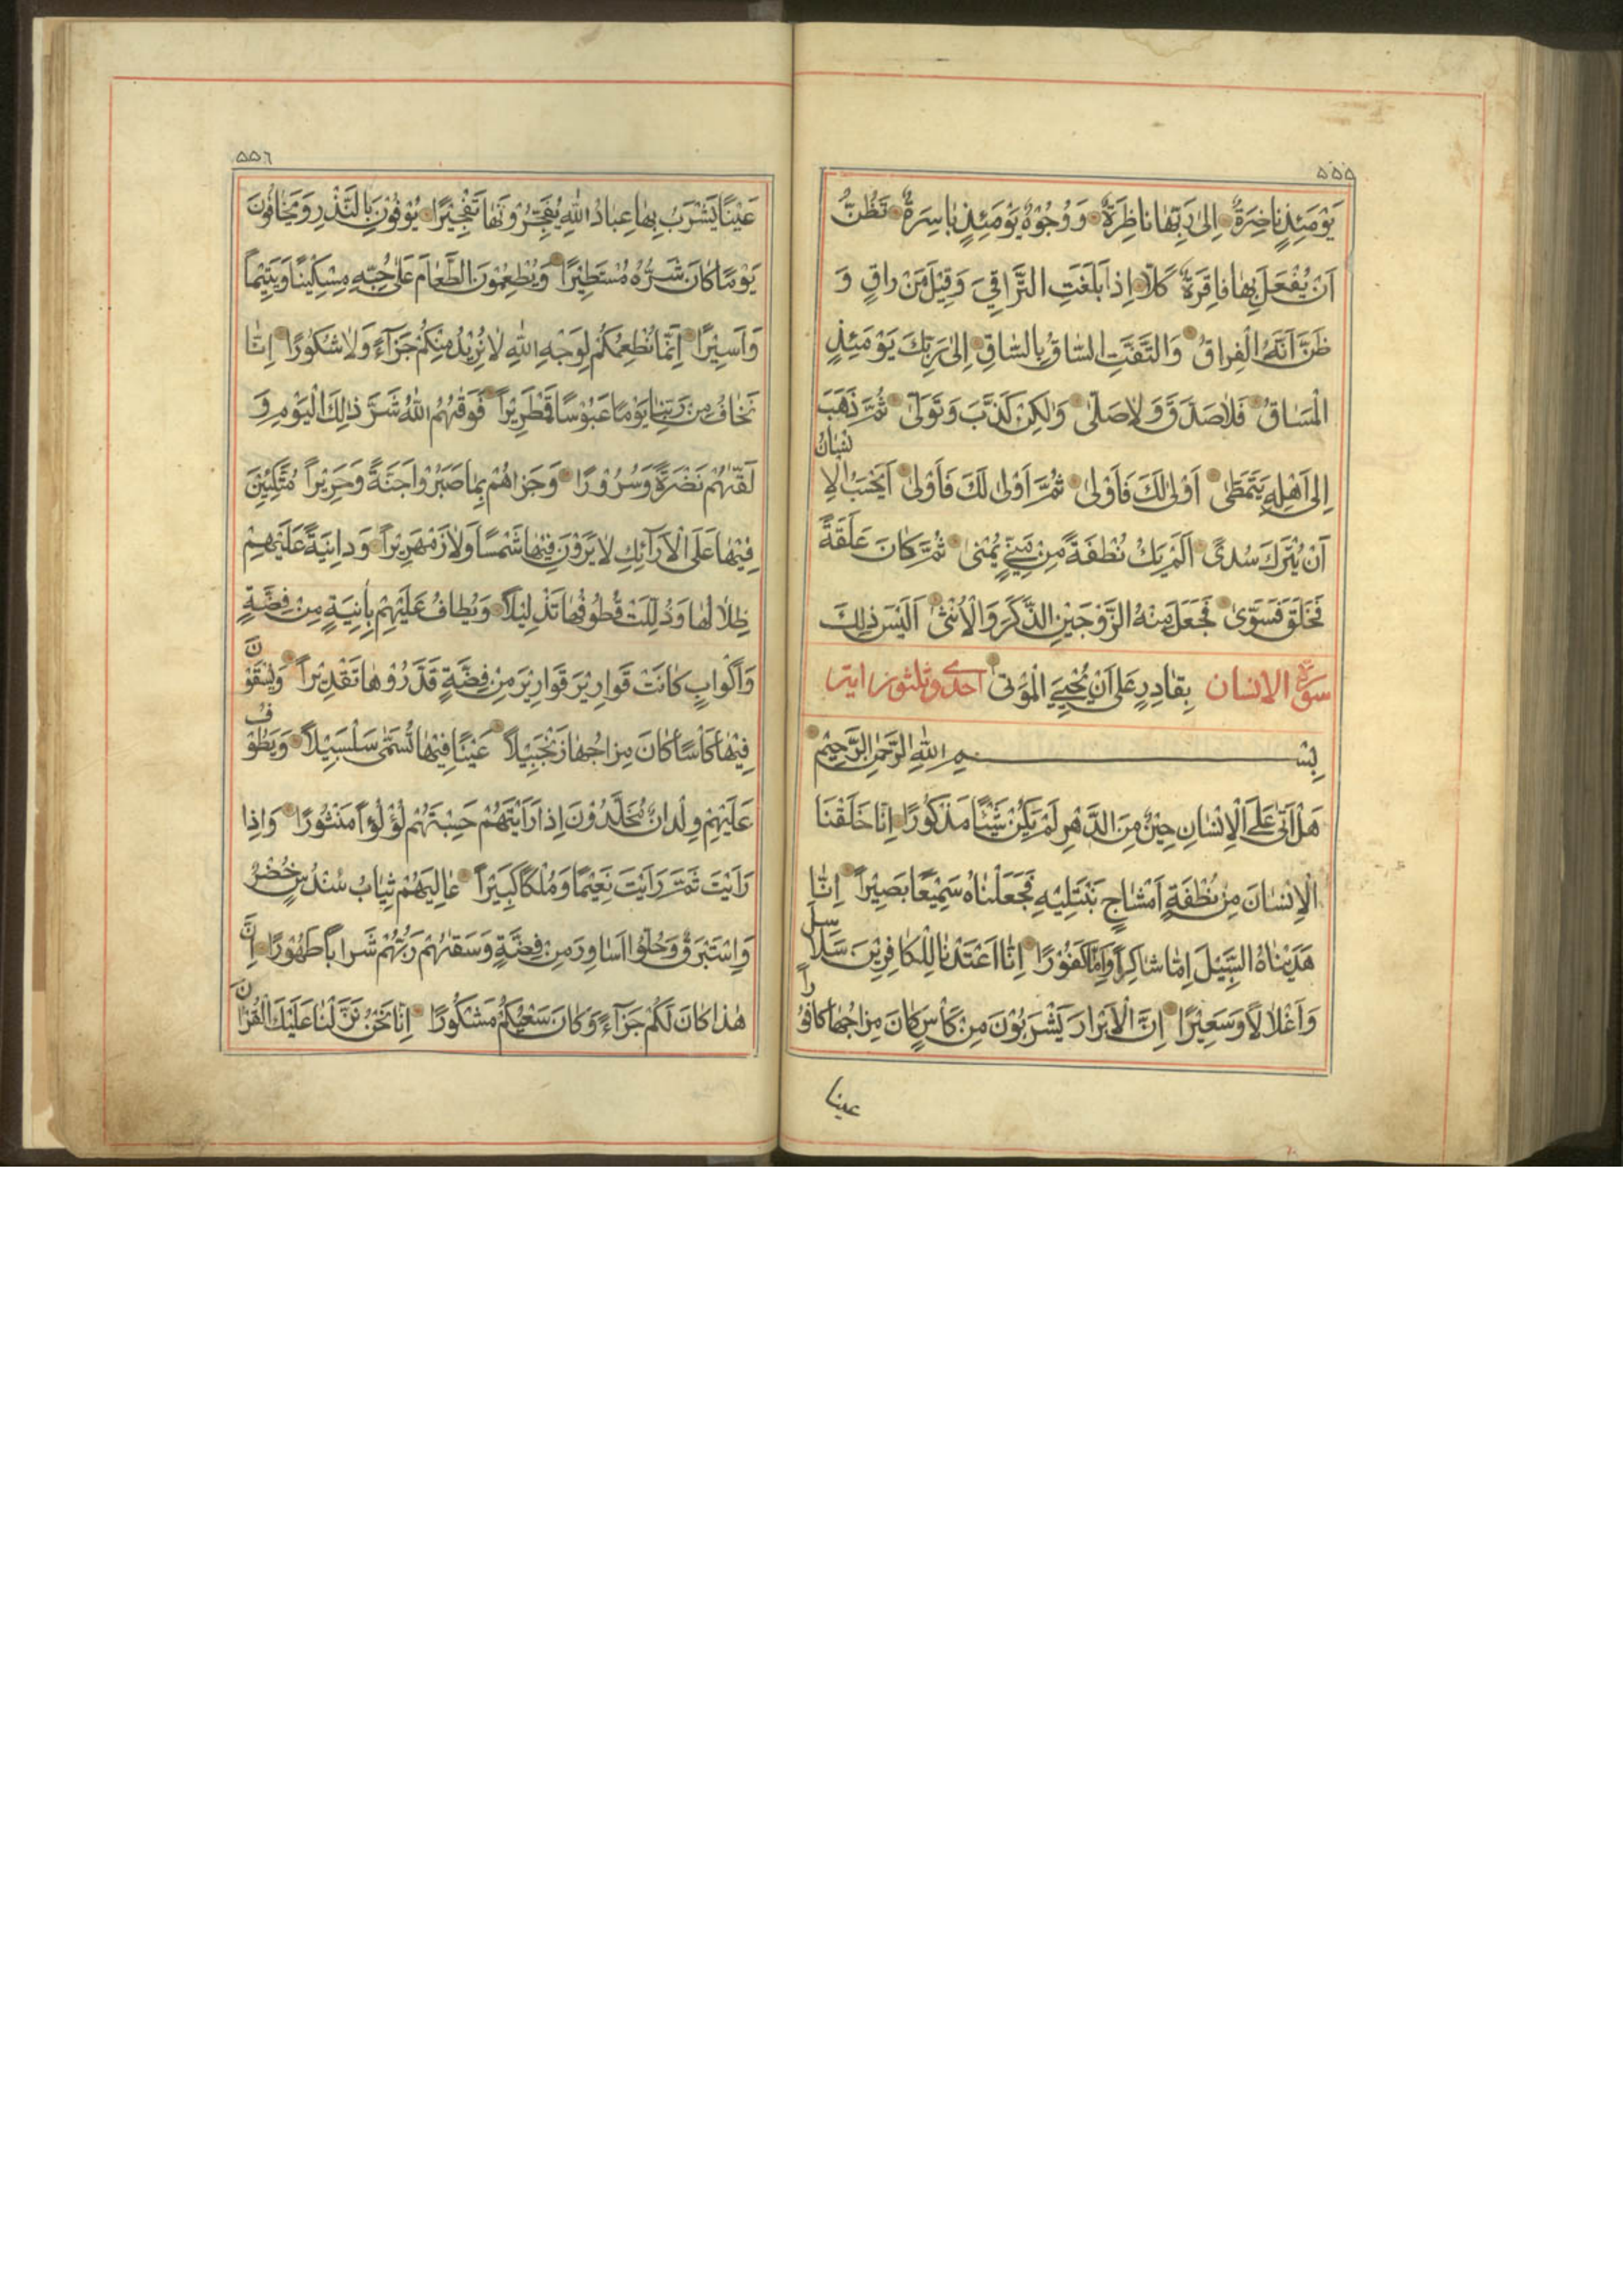 ۵۵۵
يَوْمَئِذٍ نَاضِرَةٌ اِلىٰ رَبِّهَا نَاظِرَةٌ وَ وُجُوْهٌ يَوْمَئِذٍ بَاسِرَةٌ تَظُنُّ
اَنْ يُفْعَلَ بِهَا فَاقِرَةٌ كَلَّا اِذَا بَلَغَتِ التَّرَاقِيَ وَقِيْلَ مَنْ رَاقٍ وَ
ظَنَّ اَنَّهُ الْفِرَاقُ وَالْتَفَّتِ السَّاقُ بِالسَّاقِ اِلىٰ رَبِّكَ يَوْمَئِذٍ
الْمَسَاقُ فَلَا صَدَّقَ وَلَا صَلّىٰ وَلٰكِنْ كَذَّبَ وَتَوَلّىٰ ثُمَّ ذَهَبَ
اِلىٰ اَهْلِهِ يَتَمَطّىٰ اَوْلىٰ لَكَ فَاَوْلىٰ ثُمَّ اَوْلىٰ لَكَ فَاَوْلىٰ اَيَحْسَبُ الْاِنْسَانُ
اَنْ يُتْرَكَ سُدًى اَلَمْ يَكُ نُطْفَةً مِنْ مَنِيٍّ يُمْنىٰ ثُمَّ كَانَ عَلَقَةً
فَخَلَقَ فَسَوّىٰ فَجَعَلَ مِنْهُ الزَّوْجَيْنِ الذَّكَرَ وَالْاُنْثىٰ اَلَيْسَ ذٰلِكَ
سورة الانسان بِقَادِرٍ عَلىٰ اَنْ يُحْيِيَ الْمَوْتىٰ احدى وثلثون اية
بِسْمِ اللهِ الرَّحْمٰنِ الرَّحِيْمِ
هَلْ اَتىٰ عَلَى الْاِنْسَانِ حِيْنٌ مِنَ الدَّهْرِ لَمْ يَكُنْ شَيْئًا مَذْكُوْرًا اِنَّا خَلَقْنَا
الْاِنْسَانَ مِنْ نُطْفَةٍ اَمْشَاجٍ نَبْتَلِيْهِ فَجَعَلْنَاهُ سَمِيْعًا بَصِيْرًا اِنَّا
هَدَيْنَاهُ السَّبِيْلَ اِمَّا شَاكِرًا وَاِمَّا كَفُوْرًا اِنَّا اَعْتَدْنَا لِلْكَافِرِيْنَ سَلَاسِلَ
وَاَغْلَالًا وَسَعِيْرًا اِنَّ الْاَبْرَارَ يَشْرَبُوْنَ مِنْ كَاْسٍ كَانَ مِزَاجُهَا كَافُوْرًا
عينا
۵۵٦
عَيْنًا يَشْرَبُ بِهَا عِبَادُ اللهِ يُفَجِّرُوْنَهَا تَفْجِيْرًا يُوْفُوْنَ بِالنَّذْرِ وَيَخَافُوْنَ
يَوْمًا كَانَ شَرُّهُ مُسْتَطِيْرًا وَيُطْعِمُوْنَ الطَّعَامَ عَلىٰ حُبِّهِ مِسْكِيْنًا وَيَتِيْمًا
وَاَسِيْرًا اِنَّمَا نُطْعِمُكُمْ لِوَجْهِ اللهِ لَا نُرِيْدُ مِنْكُمْ جَزَآءً وَلَا شُكُوْرًا اِنَّا
نَخَافُ مِنْ رَبِّنَا يَوْمًا عَبُوْسًا قَمْطَرِيْرًا فَوَقٰهُمُ اللهُ شَرَّ ذٰلِكَ الْيَوْمِ وَ
لَقّٰهُمْ نَضْرَةً وَسُرُوْرًا وَجَزَاهُمْ بِمَا صَبَرُوْا جَنَّةً وَحَرِيْرًا مُتَّكِئِيْنَ
فِيْهَا عَلَى الْاَرَآئِكِ لَا يَرَوْنَ فِيْهَا شَمْسًا وَلَا زَمْهَرِيْرًا وَدَانِيَةً عَلَيْهِمْ
ظِلَالُهَا وَذُلِّلَتْ قُطُوْفُهَا تَذْلِيْلًا وَيُطَافُ عَلَيْهِمْ بِاٰنِيَةٍ مِنْ فِضَّةٍ
وَاَكْوَابٍ كَانَتْ قَوَارِيْرَ قَوَارِيْرَ مِنْ فِضَّةٍ قَدَّرُوْهَا تَقْدِيْرًا وَيُسْقَوْنَ
فِيْهَا كَاْسًا كَانَ مِزَاجُهَا زَنْجَبِيْلًا عَيْنًا فِيْهَا تُسَمّىٰ سَلْسَبِيْلًا وَيَطُوْفُ
عَلَيْهِمْ وِلْدَانٌ مُخَلَّدُوْنَ اِذَا رَاَيْتَهُمْ حَسِبْتَهُمْ لُؤْلُؤًا مَنْثُوْرًا وَاِذَا
رَاَيْتَ ثَمَّ رَاَيْتَ نَعِيْمًا وَمُلْكًا كَبِيْرًا عَالِيَهُمْ ثِيَابُ سُنْدُسٍ خُضْرٌ
وَاِسْتَبْرَقٌ وَحُلُّوْا اَسَاوِرَ مِنْ فِضَّةٍ وَسَقٰهُمْ رَبُّهُمْ شَرَابًا طَهُوْرًا اِنَّ
هٰذَا كَانَ لَكُمْ جَزَآءً وَكَانَ سَعْيُكُمْ مَشْكُوْرًا اِنَّا نَحْنُ نَزَّلْنَا عَلَيْكَ الْقُرْاٰنَ